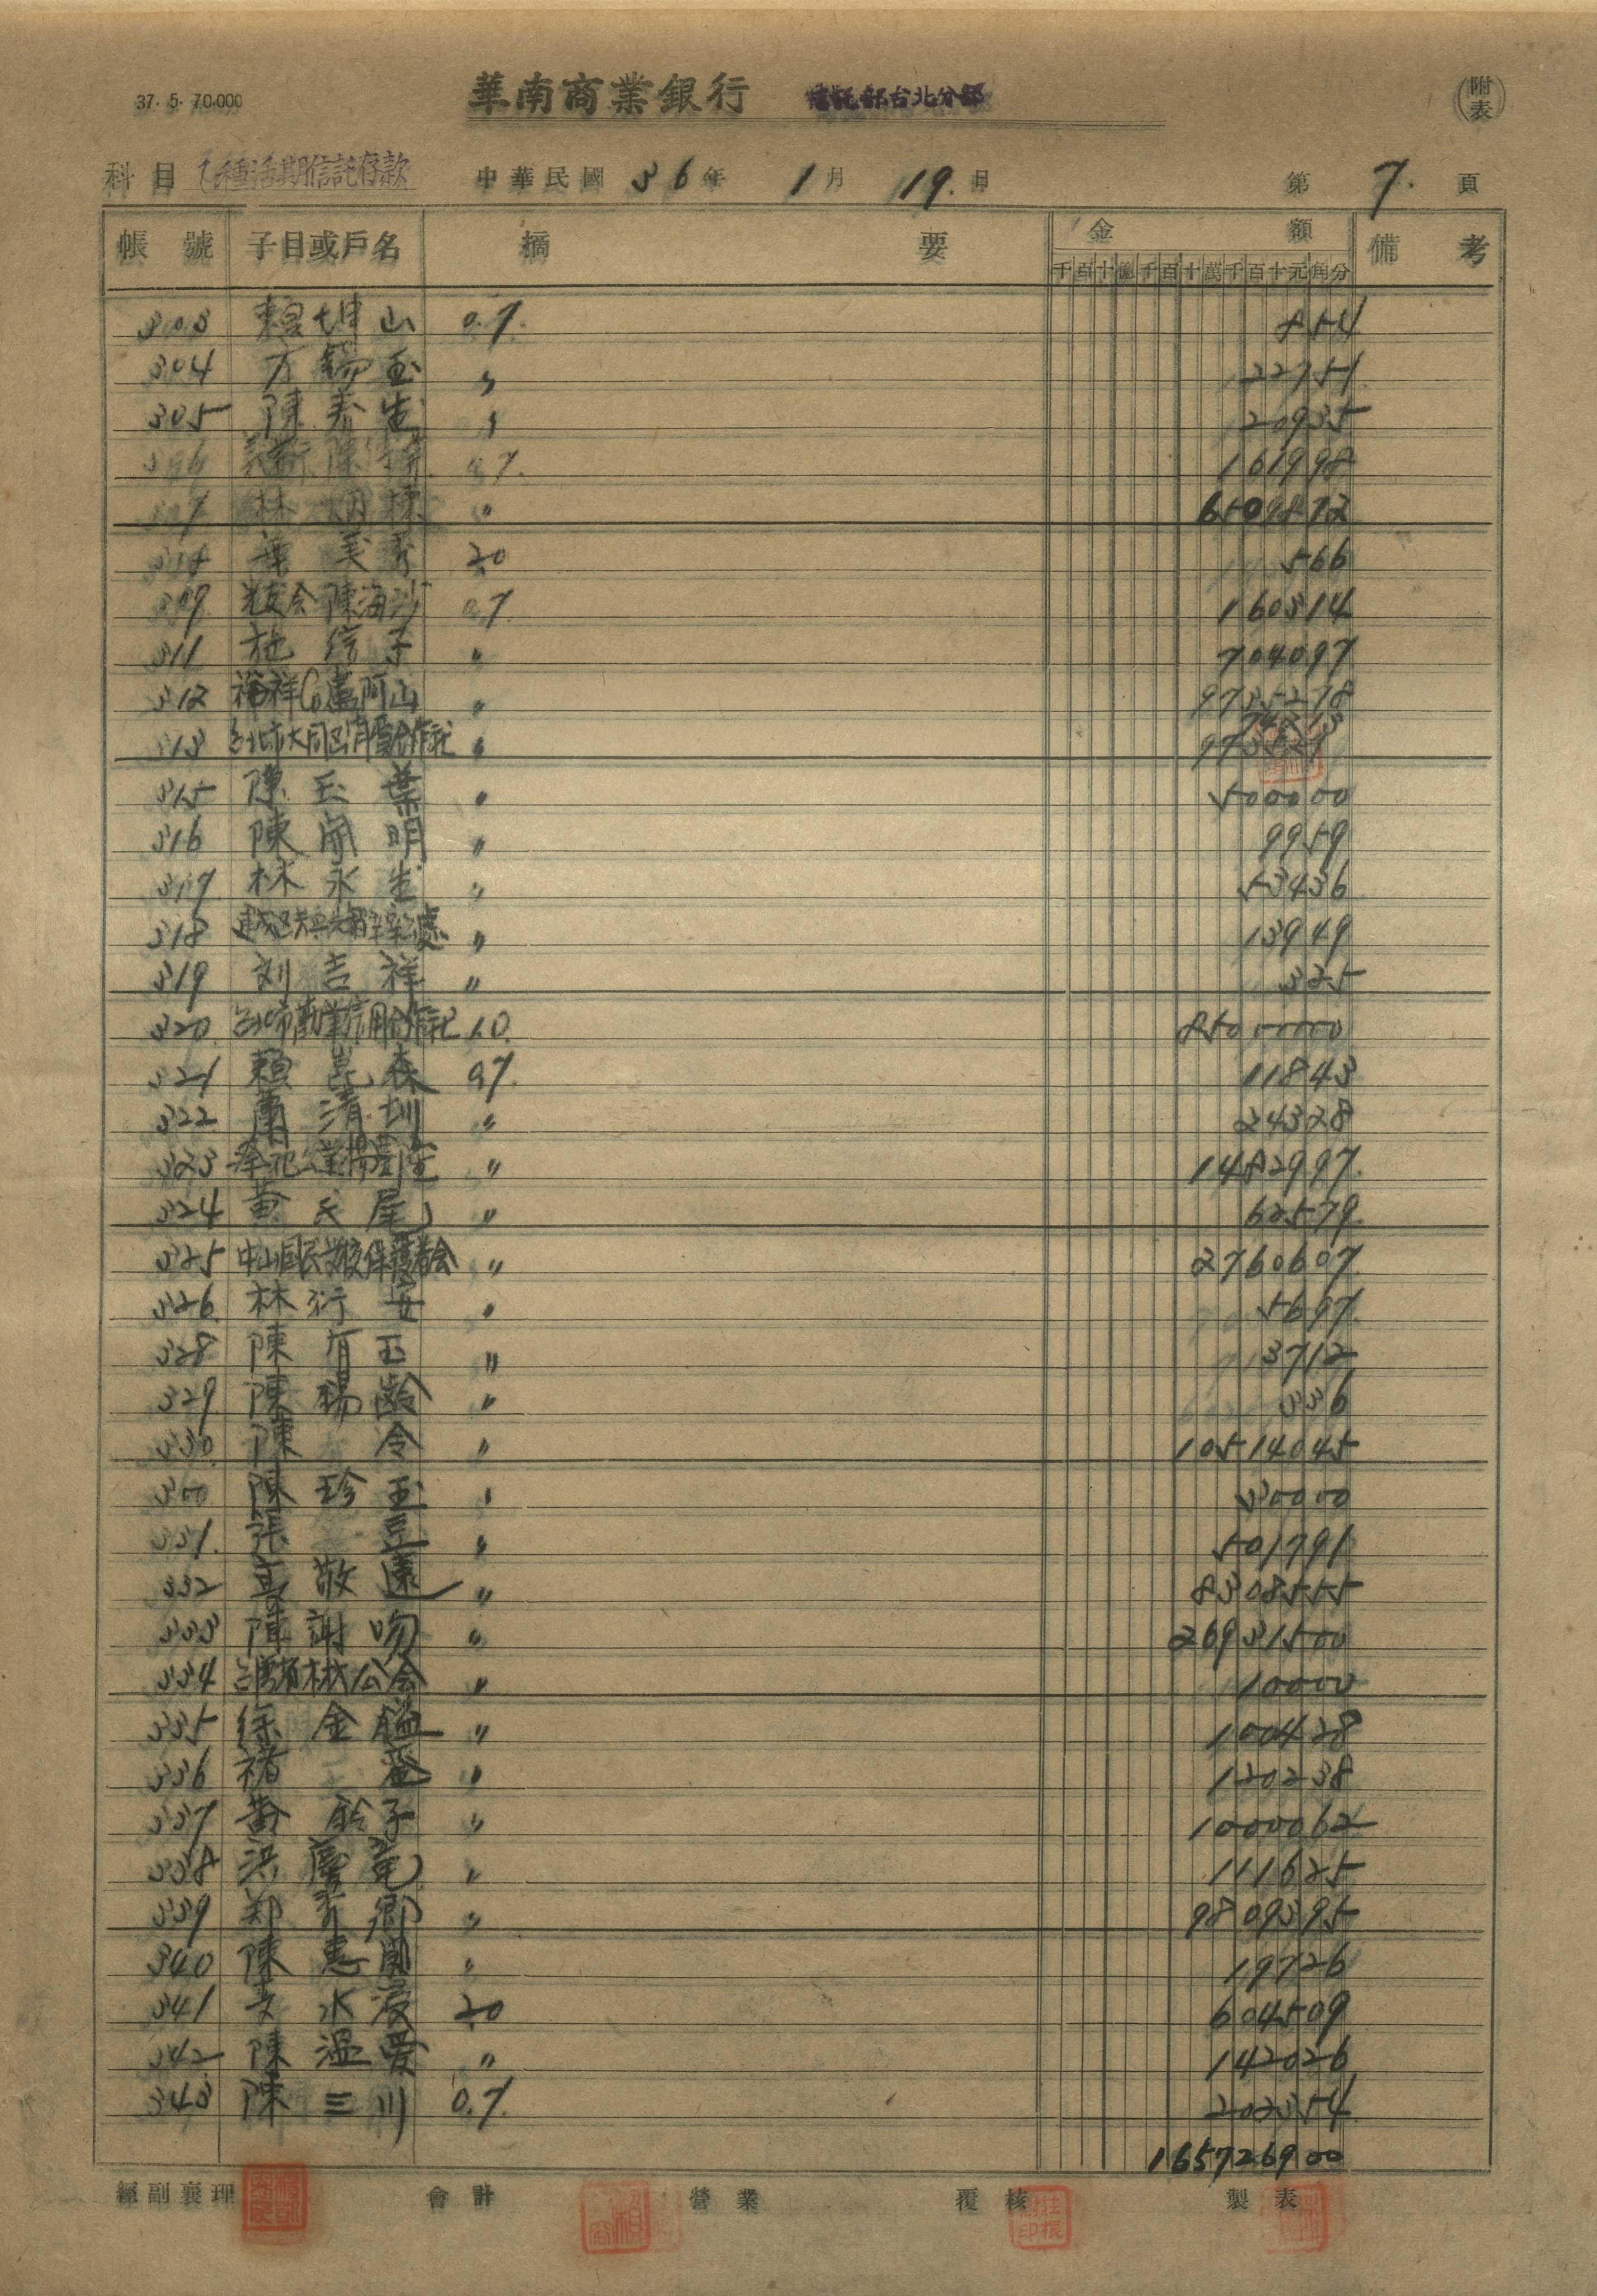 37. 5. 70,000
華南商業銀行 信託部台北分部
(附表)
科目 乙種活期信託存款 中華民國 36年 1月 19日 第 7. 頁
帳號 子目或戶名 摘要 金額 備考
千百十億千百十萬千百十元角分
303 賴坤山 0.7. 854
304 方錫玉 〃 22751
305 陳養生 〃 20935
0.7. 161998
林 棟 〃 6509872
葉美秀 20 566
309 光友会陳海沙 0.7 160314
311 施信子 〃 704097
312 福祥Co盧阿山 〃 9735278
313 台北市大同区消費合作社 〃
315 陳玉葉 〃 500000
316 陳開明 〃 9959
317 林永生 〃 53436
318 〃 13949
319 刘吉祥 〃 325
320 台北市萬華信用合作社 1.0. 85000000
321 賴崑森 0.7. 11843
322 蕭清圳 〃 24328
323 祭祀公業楊 〃 1482997
324 黃氏尾 〃 62579
325 中山国民学校保護者会 〃 2760607
326 林衍安 〃 5697
328 陳有玉 〃 3712
329 陳楊齡 〃 336
330 陳令 〃 10514045
300 陳珍玉 〃 30000
331. 張豆 〃 501791
332 高敬遠 〃 8308555
333 陳謝吻 〃 26931500
334 公会 〃 10000
335 徐金 〃 100428
336 褚 〃 120238
337 黃鈴子 〃 1000062
338 洪慶竜 〃 111625
339 郑秀卿 〃 9809395
340 陳惠蘭 〃 19726
341 水 20 604509
342 陳溫愛 〃 142026
343 陳三川 0.7. 202354
165726900
經副襄理 會計 營業 覆核 製表